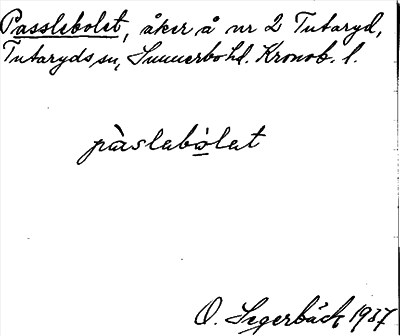 Passlebolet, åker å nr 2 Tutaryd,
Tutaryds sn, Sunnerbo hd. Kronob. l.
pàslebólet
O. Segerbäck 1937